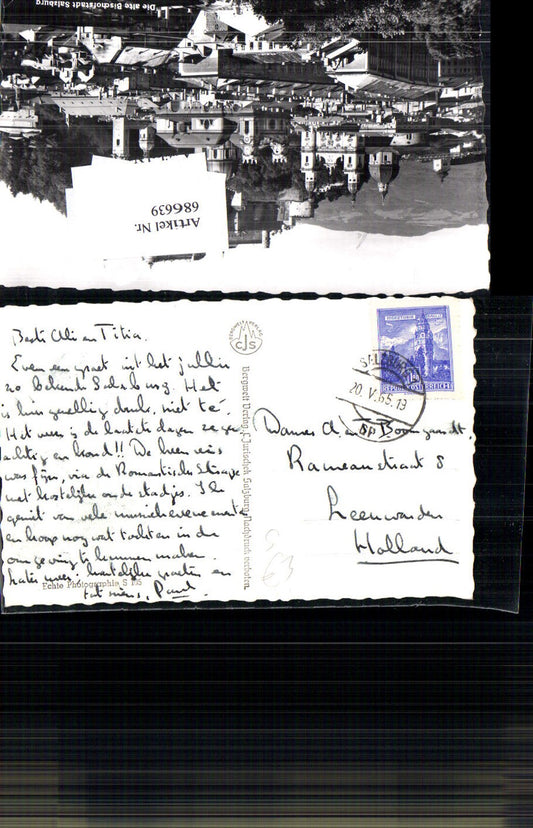 Die alte Bischofstadt Salzburg
Artikel Nr.
686639
Beste Ali en Titia.
Even een groet uit het jullie
zo bekende Salzburg. Het
is hier gezellig druk, niet té.
Het weer is de laatste dagen zo
en koud!! De heen reis
was fijn, via de Romantische Strasse
met kostelijke oude stadjes. Ik
geniet van vele
en hoop nog wat tochten in de
omgeving te kunnen maken.
hartelijke groeten en
tot ziens, Paul.
Echte Photographie S
Bergwelt Verlag C. Jurischek Salzburg/Nachdruck verboten.
CJS
SALZBURG
20.V.65.13
REPUBLIK ÖSTERREICH
Dames Boomgaardt,
Rameaustraat 8
Leeuwarden
Holland
63